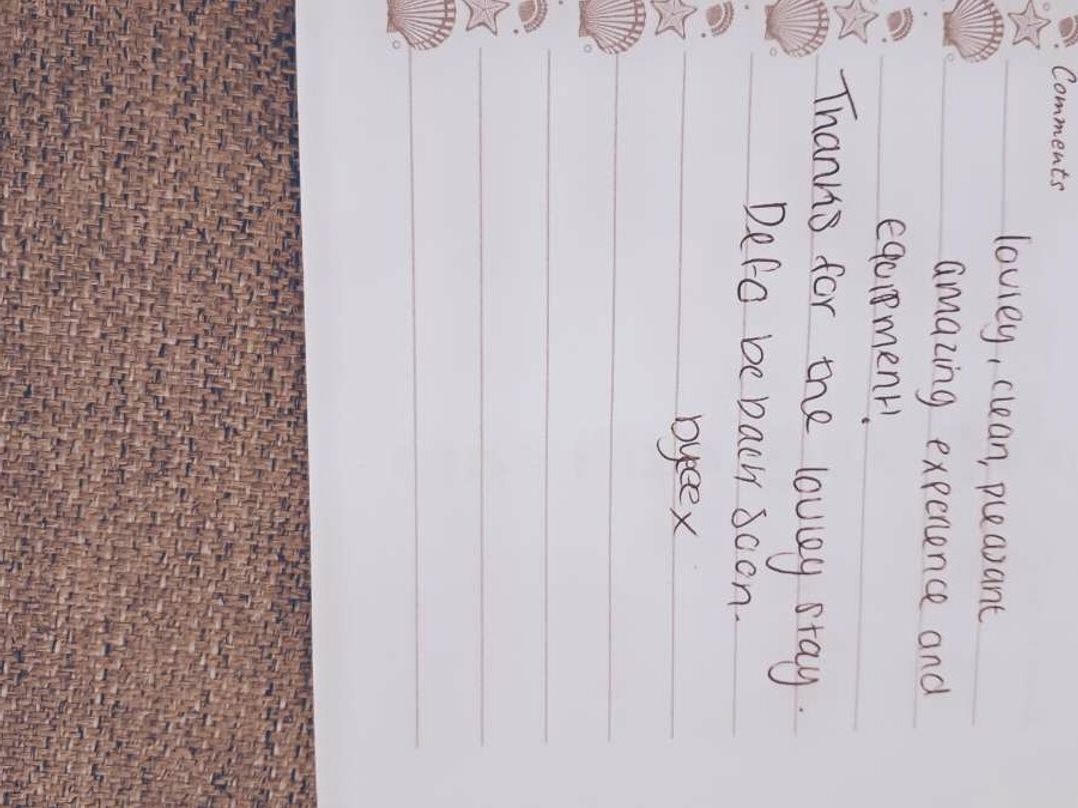 Comments
lovley, clean, pleasant
amazing experience and
equipment!
Thanks for the lovley stay.
Defo be back soon.
byeex